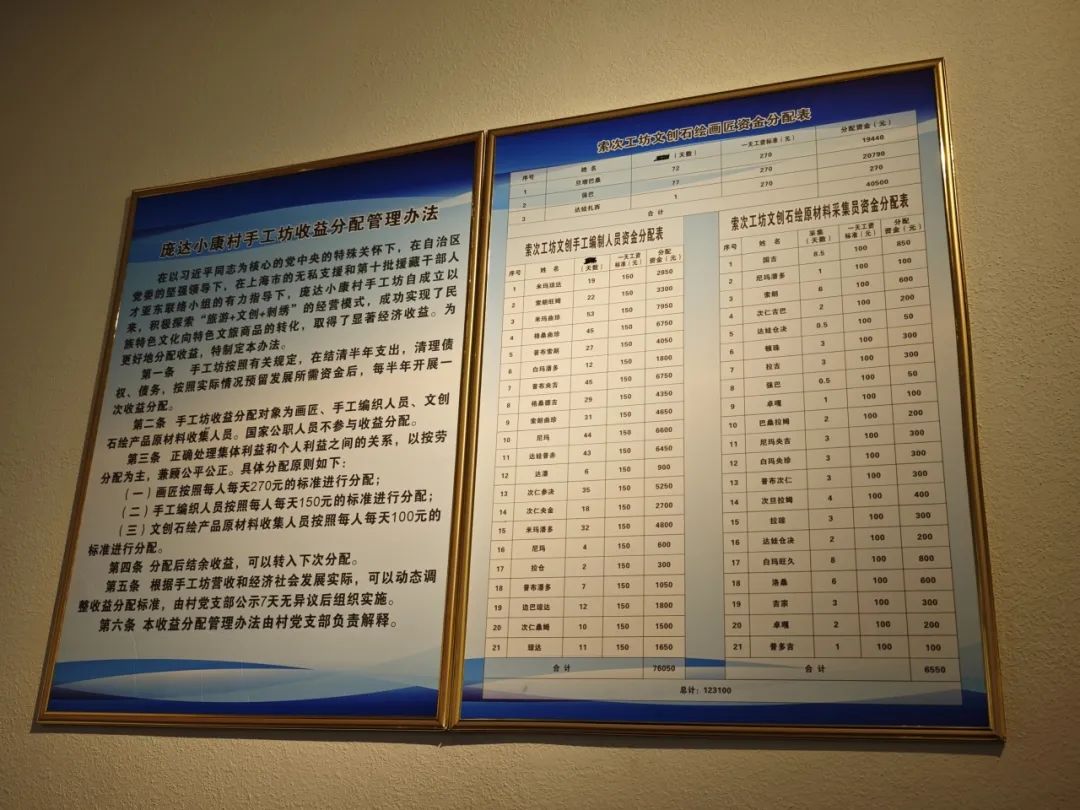 庞达小康村手工坊收益分配管理办法
在以习近平同志为核心的党中央的特殊关怀下，在自治区
党委的坚强领导下，在上海市的无私支援和第十批援藏干部人
才亚东联络小组的有力指导下，庞达小康村手工坊自成立以
来，积极探索“旅游+文创+刺绣”的经营模式，成功实现了民
族特色文化向特色文旅商品的转化，取得了显著经济收益。为
更好地分配收益，特制定本办法。
第一条 手工坊按照有关规定，在结清半年支出，清理债
权、债务，按照实际情况预留发展所需资金后，每半年开展一
次收益分配。
第二条 手工坊收益分配对象为画匠、手工编织人员、文创
石绘产品原材料收集人员。国家公职人员不参与收益分配。
第三条 正确处理集体利益和个人利益之间的关系，以按劳
分配为主，兼顾公平公正。具体分配原则如下：
（一）画匠按照每人每天270元的标准进行分配；
（二）手工编织人员按照每人每天150元的标准进行分配；
（三）文创石绘产品原材料收集人员按照每人每天100元的
标准进行分配。
第四条 分配后结余收益，可以转入下次分配。
第五条 根据手工坊营收和经济社会发展实际，可以动态调
整收益分配标准，由村党支部公示7天无异议后组织实施。
第六条 本收益分配管理办法由村党支部负责解释。
索次工坊文创石绘画匠资金分配表
序号 姓名 （天数） 一天工资标准（元） 分配资金（元）
1 旦增巴桑 72 270 19440
2 强巴 77 270 20790
3 达娃扎西 1 270 270
合计 40500
索次工坊文创手工编制人员资金分配表
序号 姓名 （天数） 一天工资标准（元） 分配资金（元）
1 米玛琼达 19 150 2850
2 索朗旺姆 22 150 3300
3 米玛曲珍 53 150 7950
4 格桑曲珍 45 150 6750
5 普布索朗 27 150 4050
6 白玛潘多 12 150 1800
7 普布央吉 45 150 6750
8 格桑德吉 29 150 4350
9 索朗曲珍 31 150 4650
10 尼玛 44 150 6600
11 达娃普赤 43 150 6450
12 达潘 6 150 900
13 次仁参决 35 150 5250
14 次仁央金 18 150 2700
15 米玛潘多 32 150 4800
16 尼玛 4 150 600
17 拉仓 2 150 300
18 普布潘多 7 150 1050
19 边巴琼达 12 150 1800
20 次仁桑姆 10 150 1500
21 琼达 11 150 1650
合计 76050
索次工坊文创石绘原材料采集员资金分配表
序号 姓名 采集（天数） 一天工资标准（元） 分配资金（元）
1 国吉 8.5 100 850
2 尼玛潘多 1 100 100
3 索朗 6 100 600
4 次仁吉巴 2 100 200
5 达娃仓决 0.5 100 50
6 顿珠 3 100 300
7 拉吉 3 100 300
8 强巴 0.5 100 50
9 卓嘎 1 100 100
10 巴桑拉姆 2 100 200
11 尼玛央吉 3 100 300
12 白玛央珍 3 100 300
13 普布次仁 3 100 300
14 次旦拉姆 4 100 400
15 拉琼 3 100 300
16 达娃仓决 2 100 200
17 白玛旺久 8 100 800
18 洛桑 6 100 600
19 吉宗 3 100 300
20 卓嘎 2 100 200
21 普多吉 1 100 100
合计 6550
总计：123100